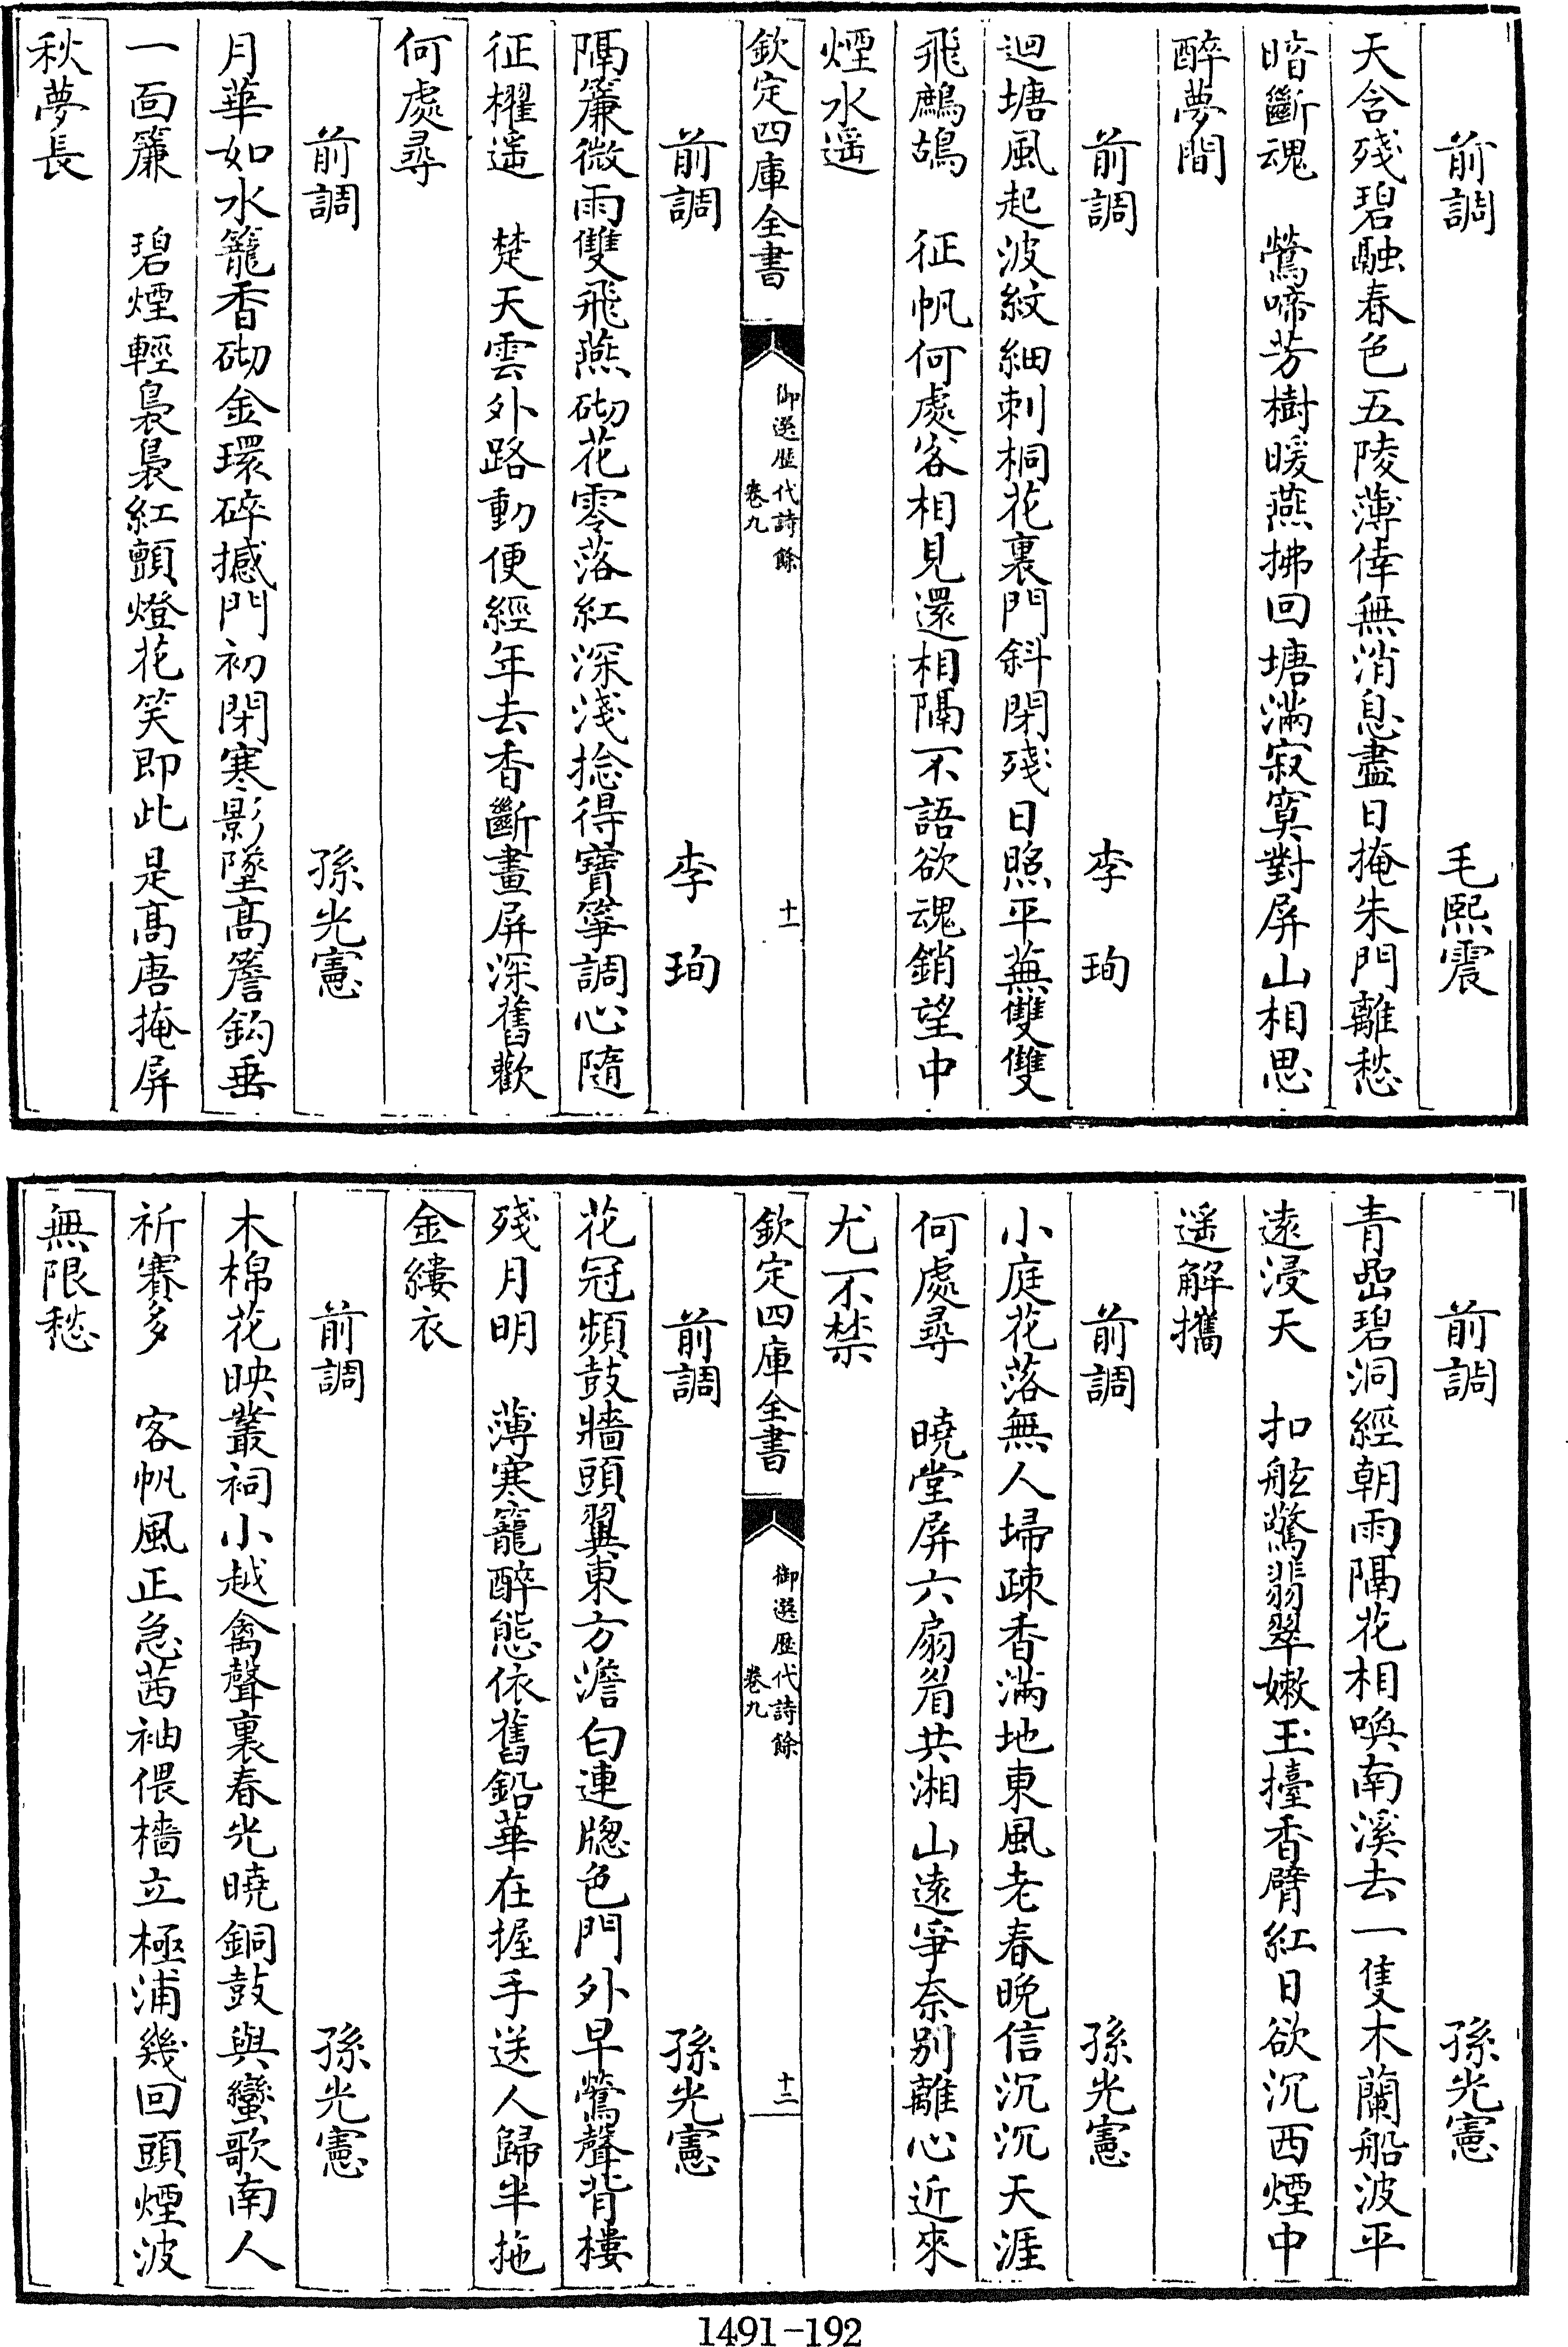 前調　毛熙震
天含殘碧融春色五陵薄倖無消息盡日掩朱門離愁
暗斷魂　鶯啼芳樹暖燕拂回塘滿寂寞對屏山相思
醉夢間
前調　李珣
迴塘風起波紋細刺桐花裏門斜閉殘日照平蕪雙雙
飛鷓鴣　征帆何處客相見還相隔不語欲魂銷望中
煙水遥
欽定四庫全書
御選歷代詩餘
卷九
十一
前調　李珣
隔簾微雨雙飛燕砌花零落紅深淺捻得寶箏調心隨
征櫂遥　楚天雲外路動便經年去香斷畫屏深舊歡
何處尋
前調　孫光憲
月華如水籠香砌金環碎撼門初閉寒影墜高簷鈎垂
一面簾　碧煙輕裊裊紅顫燈花笑即此是高唐掩屏
秋夢長
前調　孫光憲
青嵒碧洞經朝雨隔花相喚南溪去一隻木蘭船波平
遠浸天　扣舷驚翡翠嫩玉擡香臂紅日欲沉西煙中
遥解攜
前調　孫光憲
小庭花落無人埽疎香滿地東風老春晚信沉沉天涯
何處尋　曉堂屏六扇眉共湘山遠爭奈别離心近來
尤不禁
欽定四庫全書
御選歷代詩餘
卷九
十二
前調　孫光憲
花冠頻鼓牆頭翼東方澹白連牎色門外早鶯聲背樓
殘月明　薄寒籠醉態依舊鉛華在握手送人歸半拖
金縷衣
前調　孫光憲
木棉花映叢祠小越禽聲裏春光曉銅鼓與蠻歌南人
祈賽多　客帆風正急茜袖偎檣立極浦幾回頭煙波
無限愁
1491-192